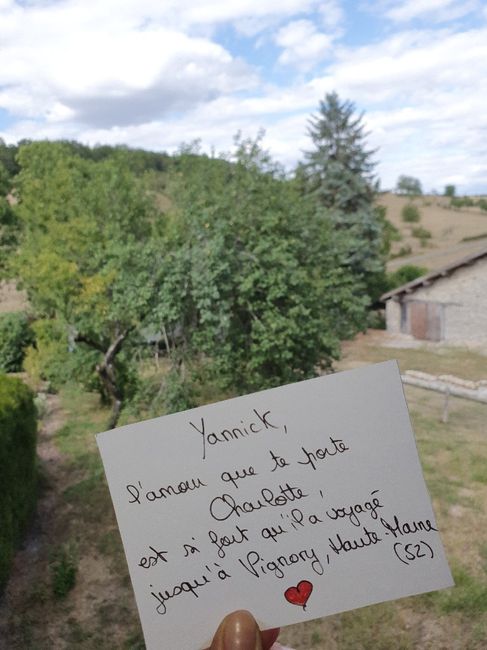 Yannick,
l'amour que te porte
Charlotte,
est si fort qu'il a voyagé
jusqu'à Vignory, Haute-Marne
(52)